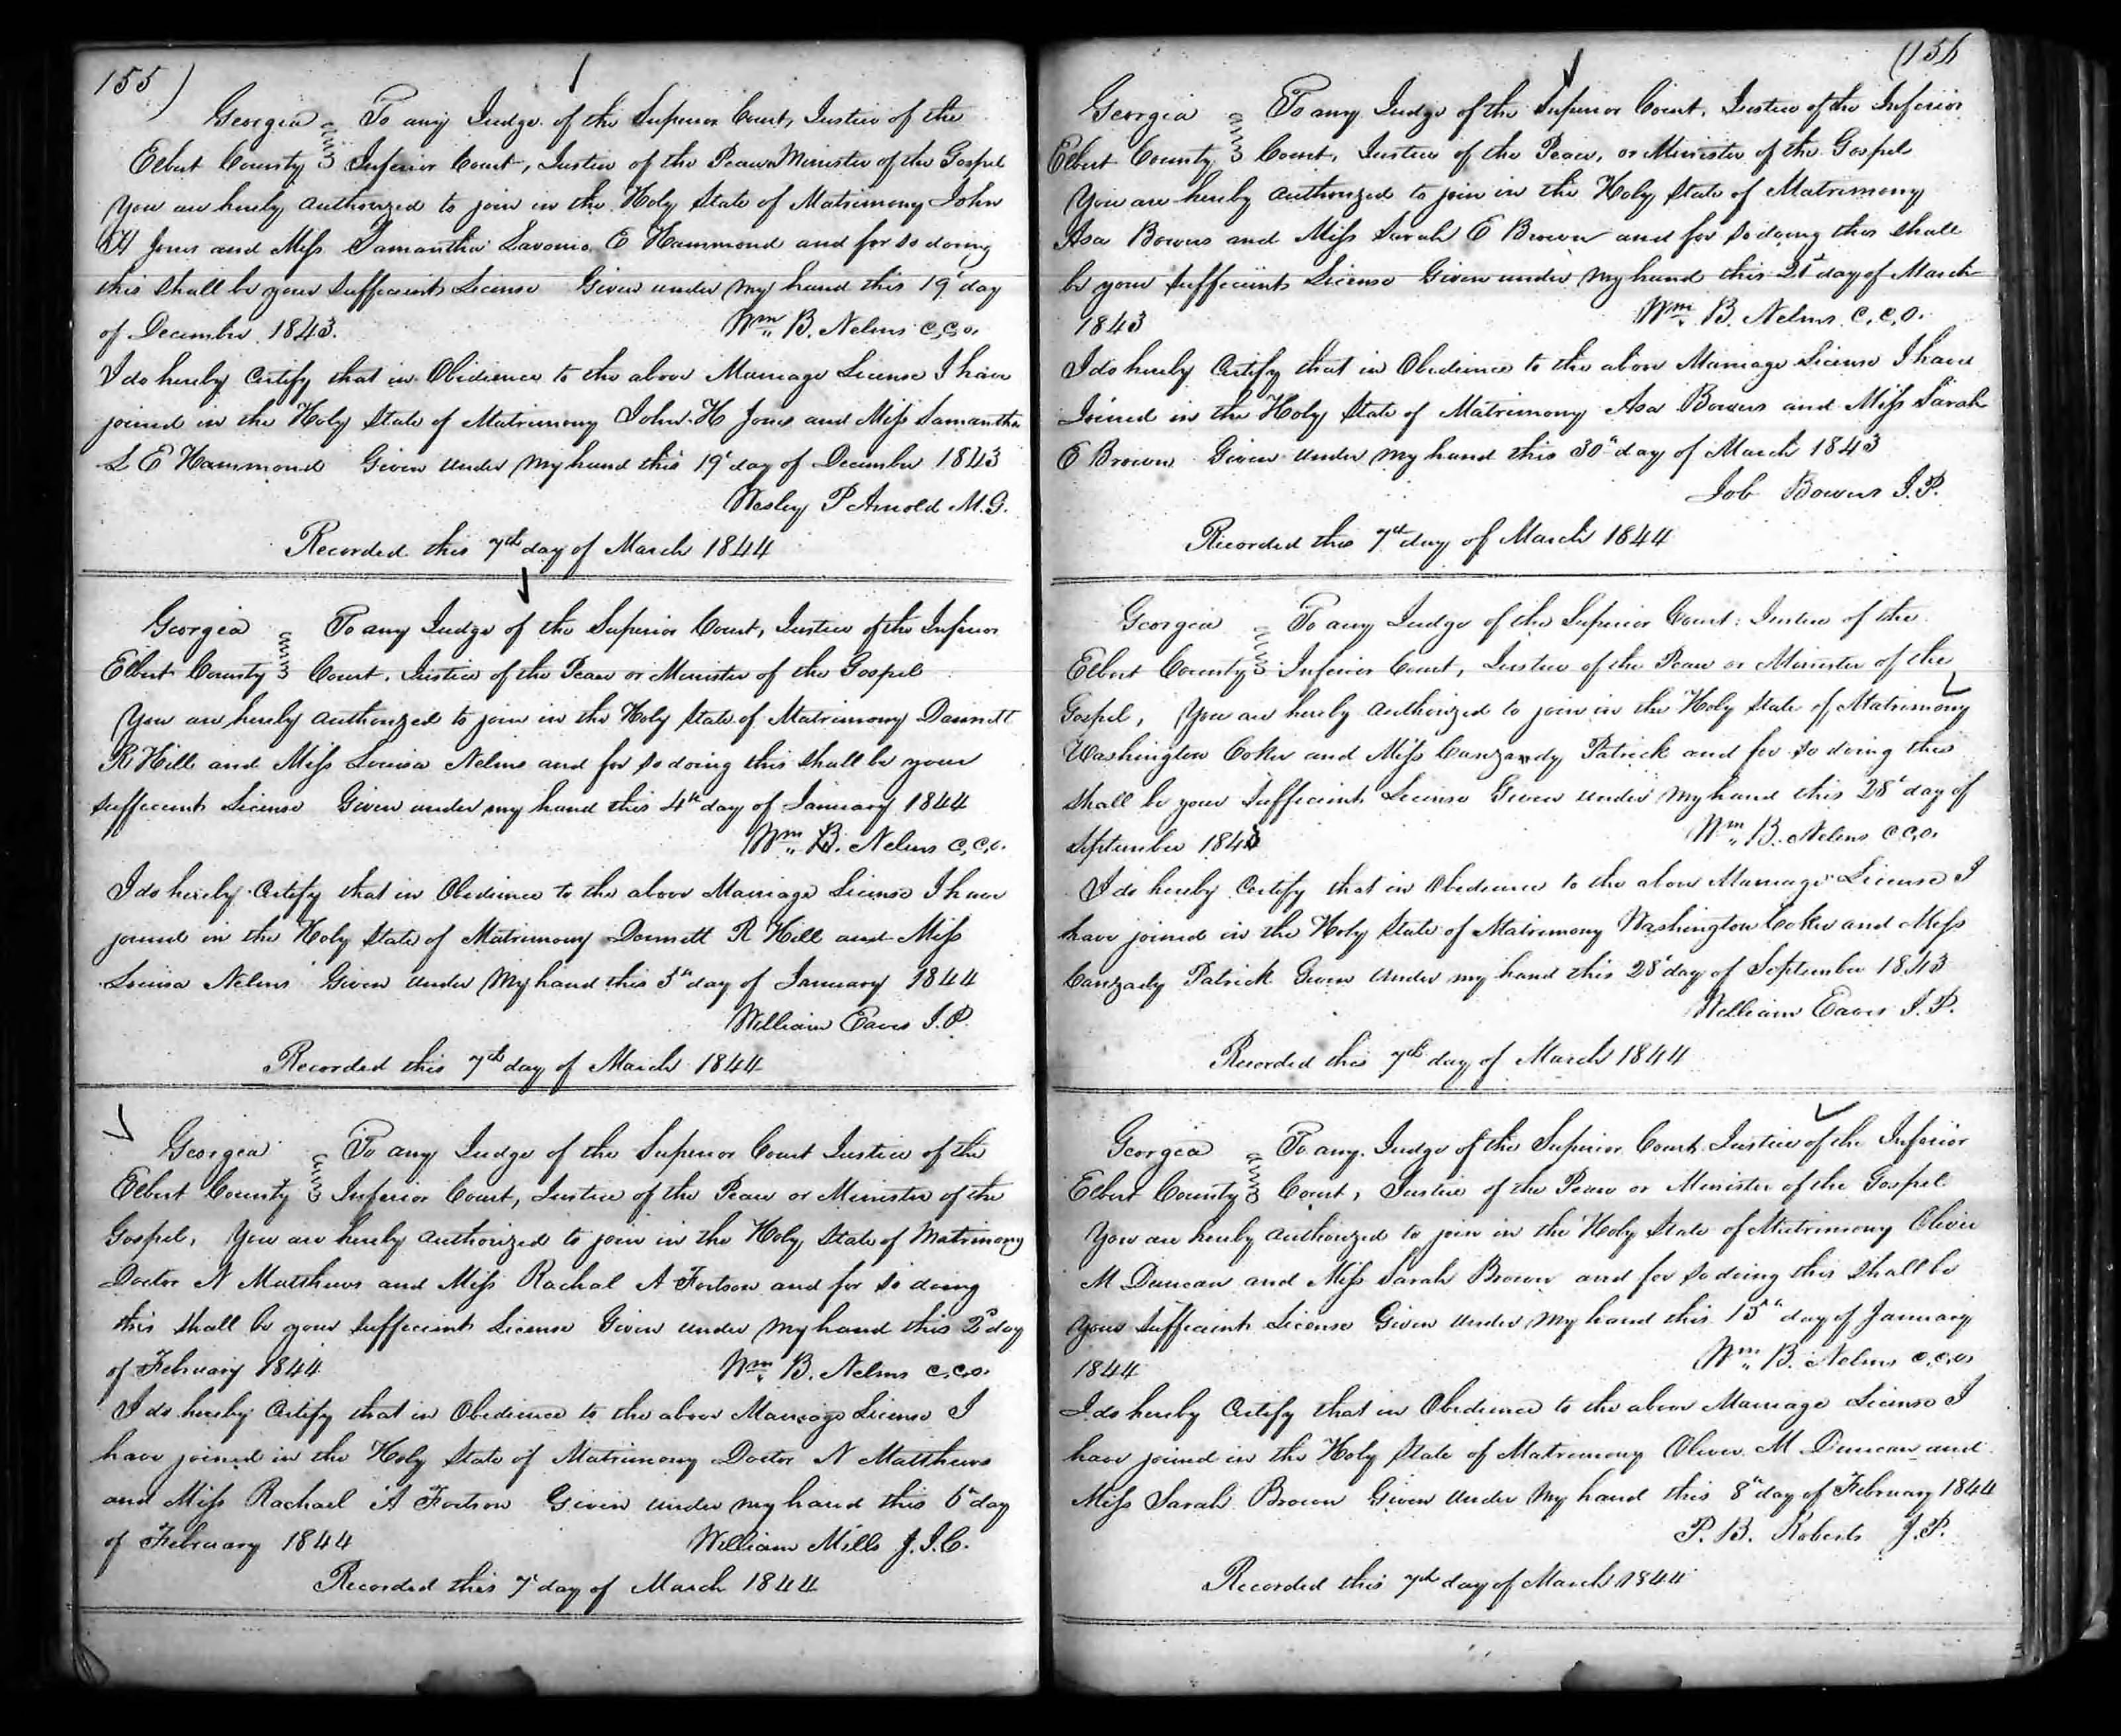 155)
Georgia To any Judge of the Superior Court, Justice of the
Elbert County Inferior Court, Justice of the Peace or Minister of the Gospel
You are hereby authorized to join in the Holy State of Matrimony John
H Jones and Miss Samantha Lavonia E Hammond and for so doing
this shall be your sufficient License Given under my hand this 19th day
of December 1843. Wm B. Nelms c.c.o.
I do hereby Certify that in Obedience to the above Marriage License I have
joined in the Holy State of Matrimony John H Jones and Miss Samantha
L E Hammond Given under my hand this 19th day of December 1843
Wesley P Arnold M.G.
Recorded this 7th day of March 1844
Georgia To any Judge of the Superior Court, Justice of the Inferior
Elbert County Court, Justice of the Peace or Minister of the Gospel
You are hereby authorized to join in the Holy State of Matrimony Dannett
R Hill and Miss Louisa Nelms and for so doing this shall be your
sufficient License Given under my hand this 4th day of January 1844
Wm B. Nelms c.c.o.
I do hereby Certify that in Obedience to the above Marriage License I have
joined in the Holy State of Matrimony Dannett R Hill and Miss
Louisa Nelms Given under my hand this 5th day of January 1844
William Eaves J.P.
Recorded this 7th day of March 1844
Georgia To any Judge of the Superior Court Justice of the
Elbert County Inferior Court, Justice of the Peace or Minister of the
Gospel, You are hereby authorized to join in the Holy State of Matrimony
Doctor N Matthews and Miss Rachal A Fortson and for so doing
this shall be your sufficient License Given under my hand this 2d day
of February 1844 Wm B. Nelms c.c.o.
I do hereby Certify that in Obedience to the above Marriage License I
have joined in the Holy State of Matrimony Doctor N Matthews
and Miss Rachael A Fortson Given under my hand this 6th day
of February 1844 William Mills J.I.C.
Recorded this 7th day of March 1844
(156
Georgia To any Judge of the Superior Court, Justice of the Inferior
Elbert County Court, Justice of the Peace, or Minister of the Gospel
You are hereby authorized to join in the Holy State of Matrimony
Asa Bowers and Miss Sarah E Brown and for so doing this shall
be your sufficient License Given under my hand this 21st day of March
1843 Wm B. Nelms c.c.o.
I do hereby Certify that in Obedience to the above Marriage License I have
Joined in the Holy State of Matrimony Asa Bowers and Miss Sarah
E Brown Given under my hand this 30th day of March 1843
Job Bowers J.P.
Recorded this 7th day of March 1844
Georgia To any Judge of the Superior Court, Justice of the
Elbert County Inferior Court, Justice of the Peace or Minister of the
Gospel, You are hereby authorized to join in the Holy State of Matrimony
Washington Coker and Miss Canzandy Patrick and for so doing this
shall be your sufficient License Given under my hand this 28th day of
September 1843 Wm B. Nelms c.c.o.
I do hereby Certify that in Obedience to the above Marriage License I
have joined in the Holy State of Matrimony Washington Coker and Miss
Canzady Patrick Given under my hand this 28th day of September 1843
William Eaves J.P.
Recorded this 7th day of March 1844
Georgia To any Judge of the Superior Court Justice of the Inferior
Elbert County Court, Justice of the Peace or Minister of the Gospel
You are hereby authorized to join in the Holy State of Matrimony Oliver
M Duncan and Miss Sarah Brown and for so doing this shall be
your sufficient License Given under my hand this 15th day of January
1844 Wm B. Nelms c.c.o.
I do hereby Certify that in Obedience to the above Marriage License I
have joined in the Holy State of Matrimony Oliver M Duncan and
Miss Sarah Brown Given under my hand this 8th day of February 1844
P. B. Roberts J.P.
Recorded this 7th day of March 1844